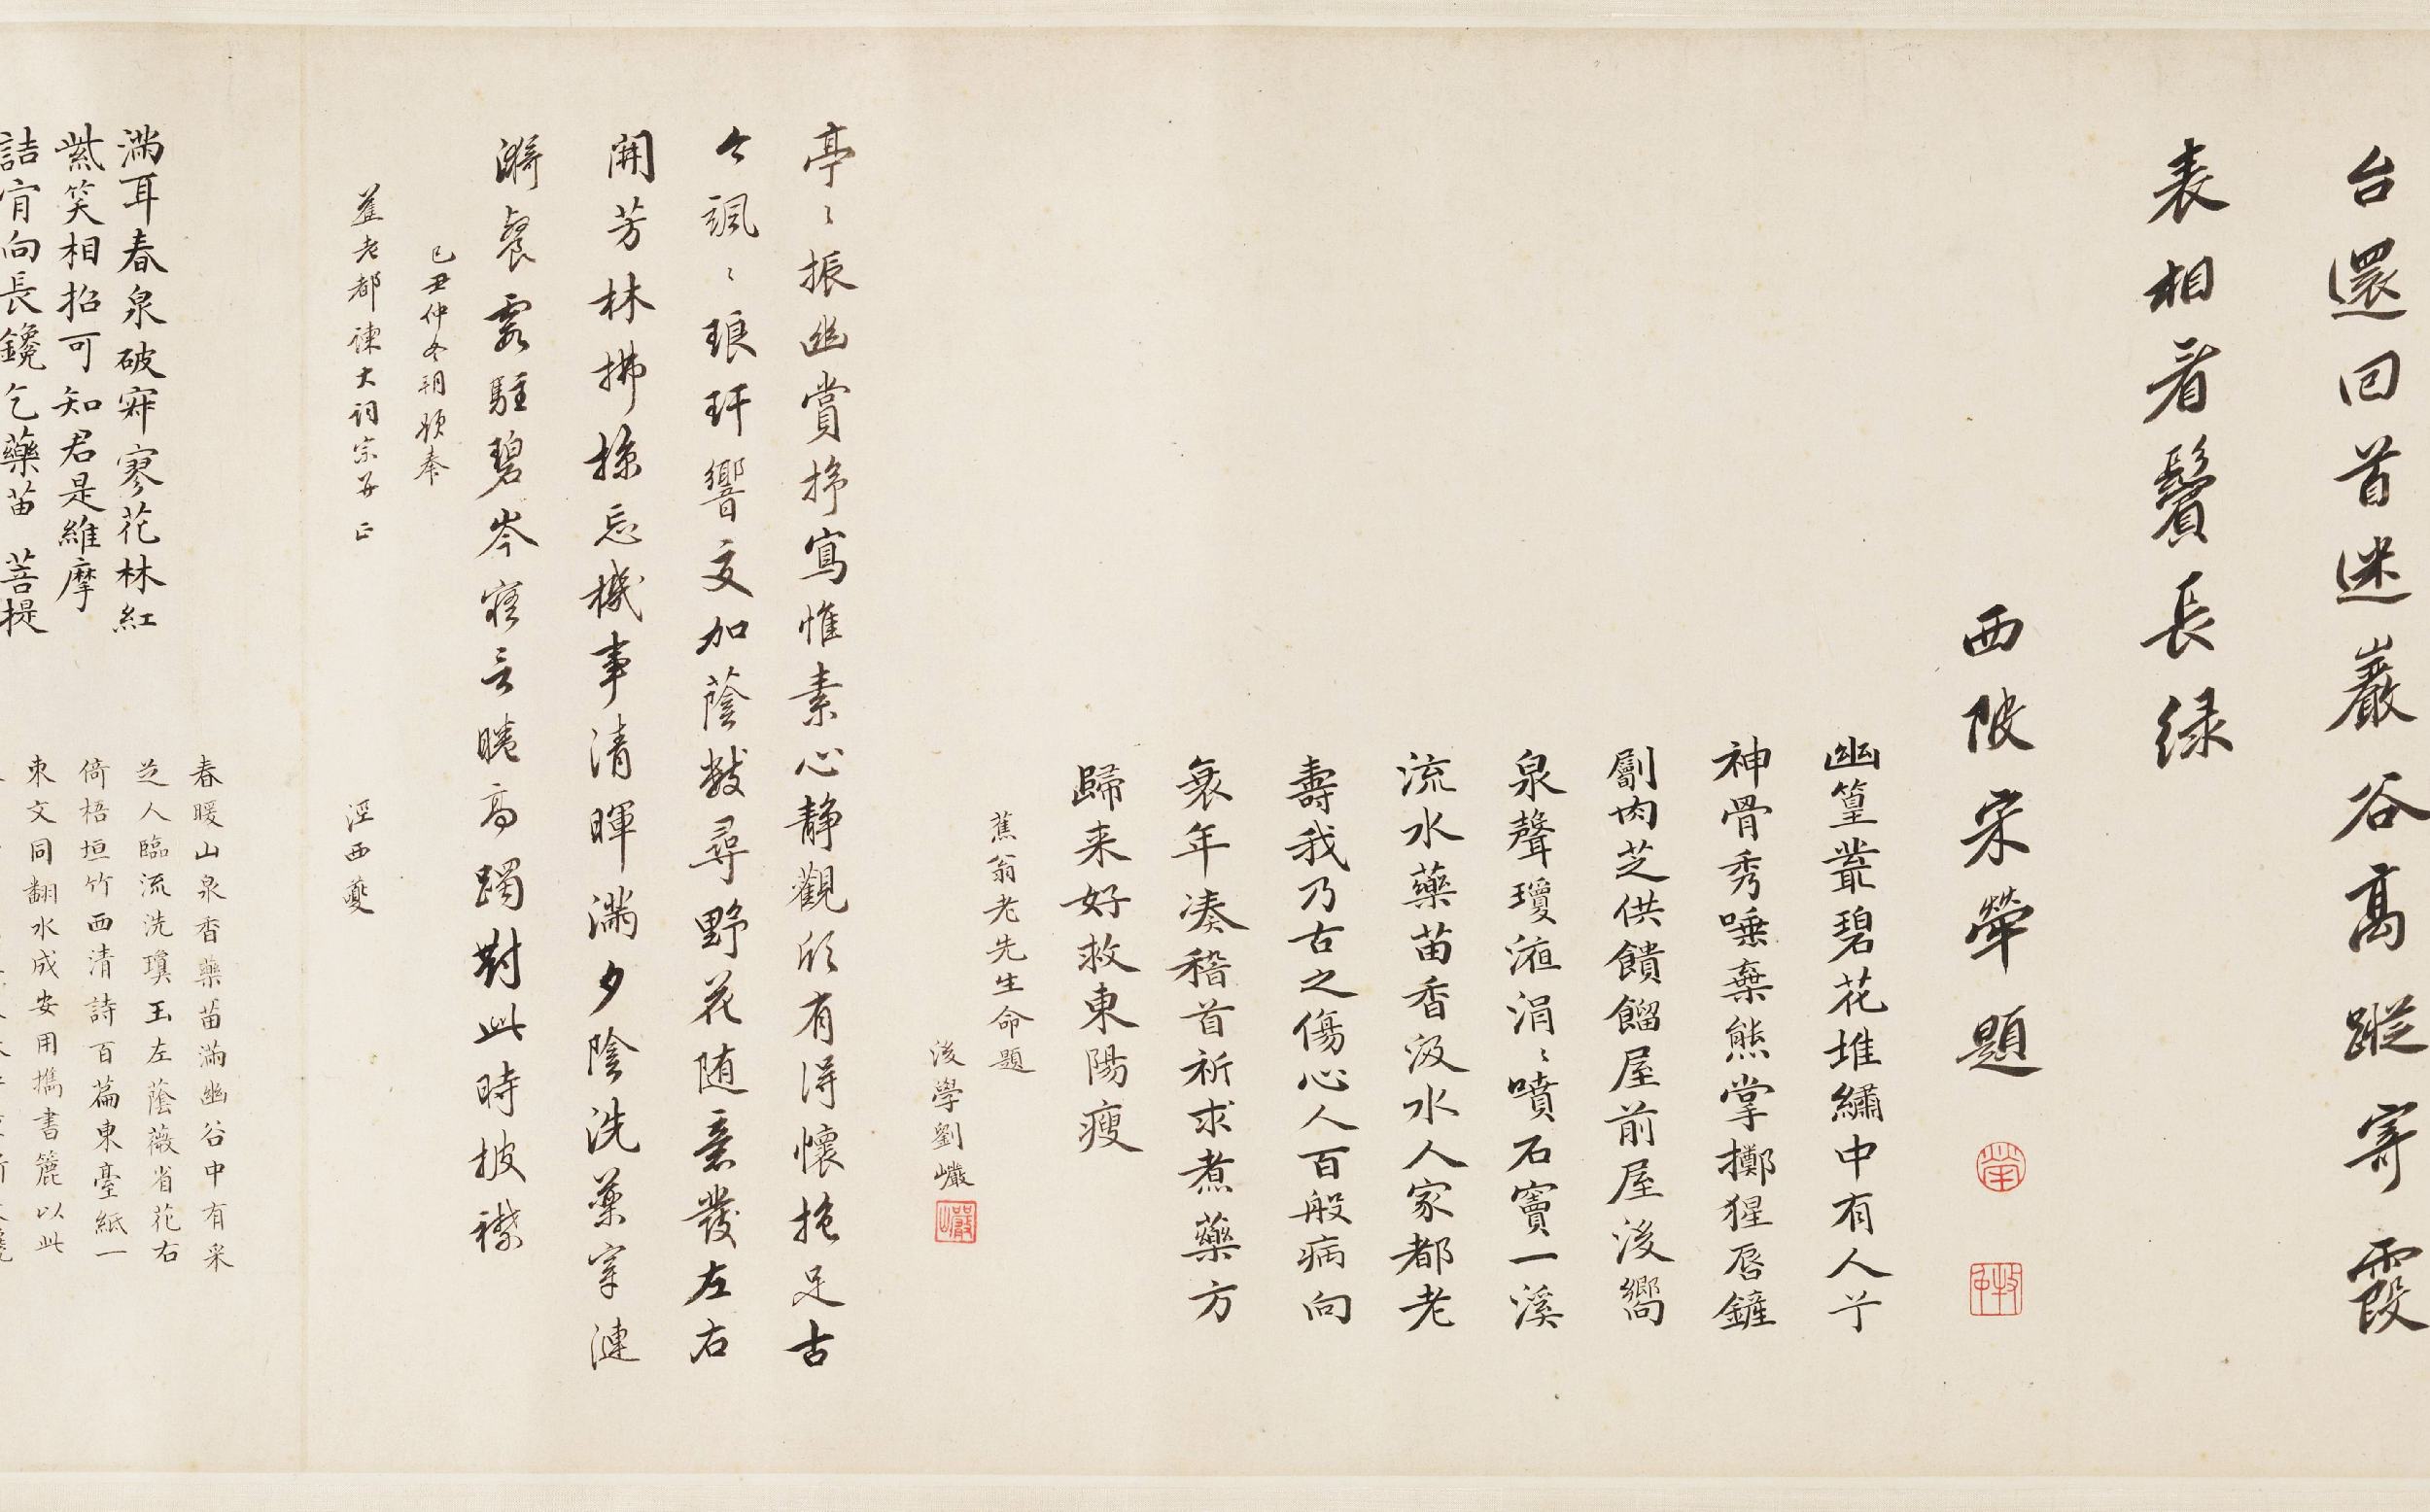 台還回首迷巖谷高蹤寄霞
表相看鬢長綠
西陂宋犖題
幽篁叢碧花堆繡中有人兮
神骨秀唾棄熊掌擲猩唇鏟
劚肉芝供饋餾屋前屋後嚮
泉聲瓊液涓〻噴石竇一溪
流水藥苗香汲水人家都老
壽我乃古之傷心人百般病向
衰年湊稽首祈求煮藥方
歸来好救東陽瘦
蕉翁老先生命題
後學劉巘
亭〻振幽賞抒寫惟素心靜觀欣有得懷抱足古
今颯〻琅玕響交加蔭數尋野花随意發左右
開芳林拂掠忘機事清暉滿夕陰洗藥穿漣
漪餐霞駐碧岑寤言晞高躅對此時披襟
己丑仲冬朔題奉
老都諫大詞宗并正
涇西
滿耳春泉破寂寥花林紅
紫笑相招可知君是維摩
詰肯向長鑱乞藥苗 菩提
春暖山泉香藥苗滿幽谷中有采
芝人臨流洗瓊玉左蔭薇省花右
倚梧垣竹西清詩百篇東臺紙一
束文同翻水成安用擕書簏以此